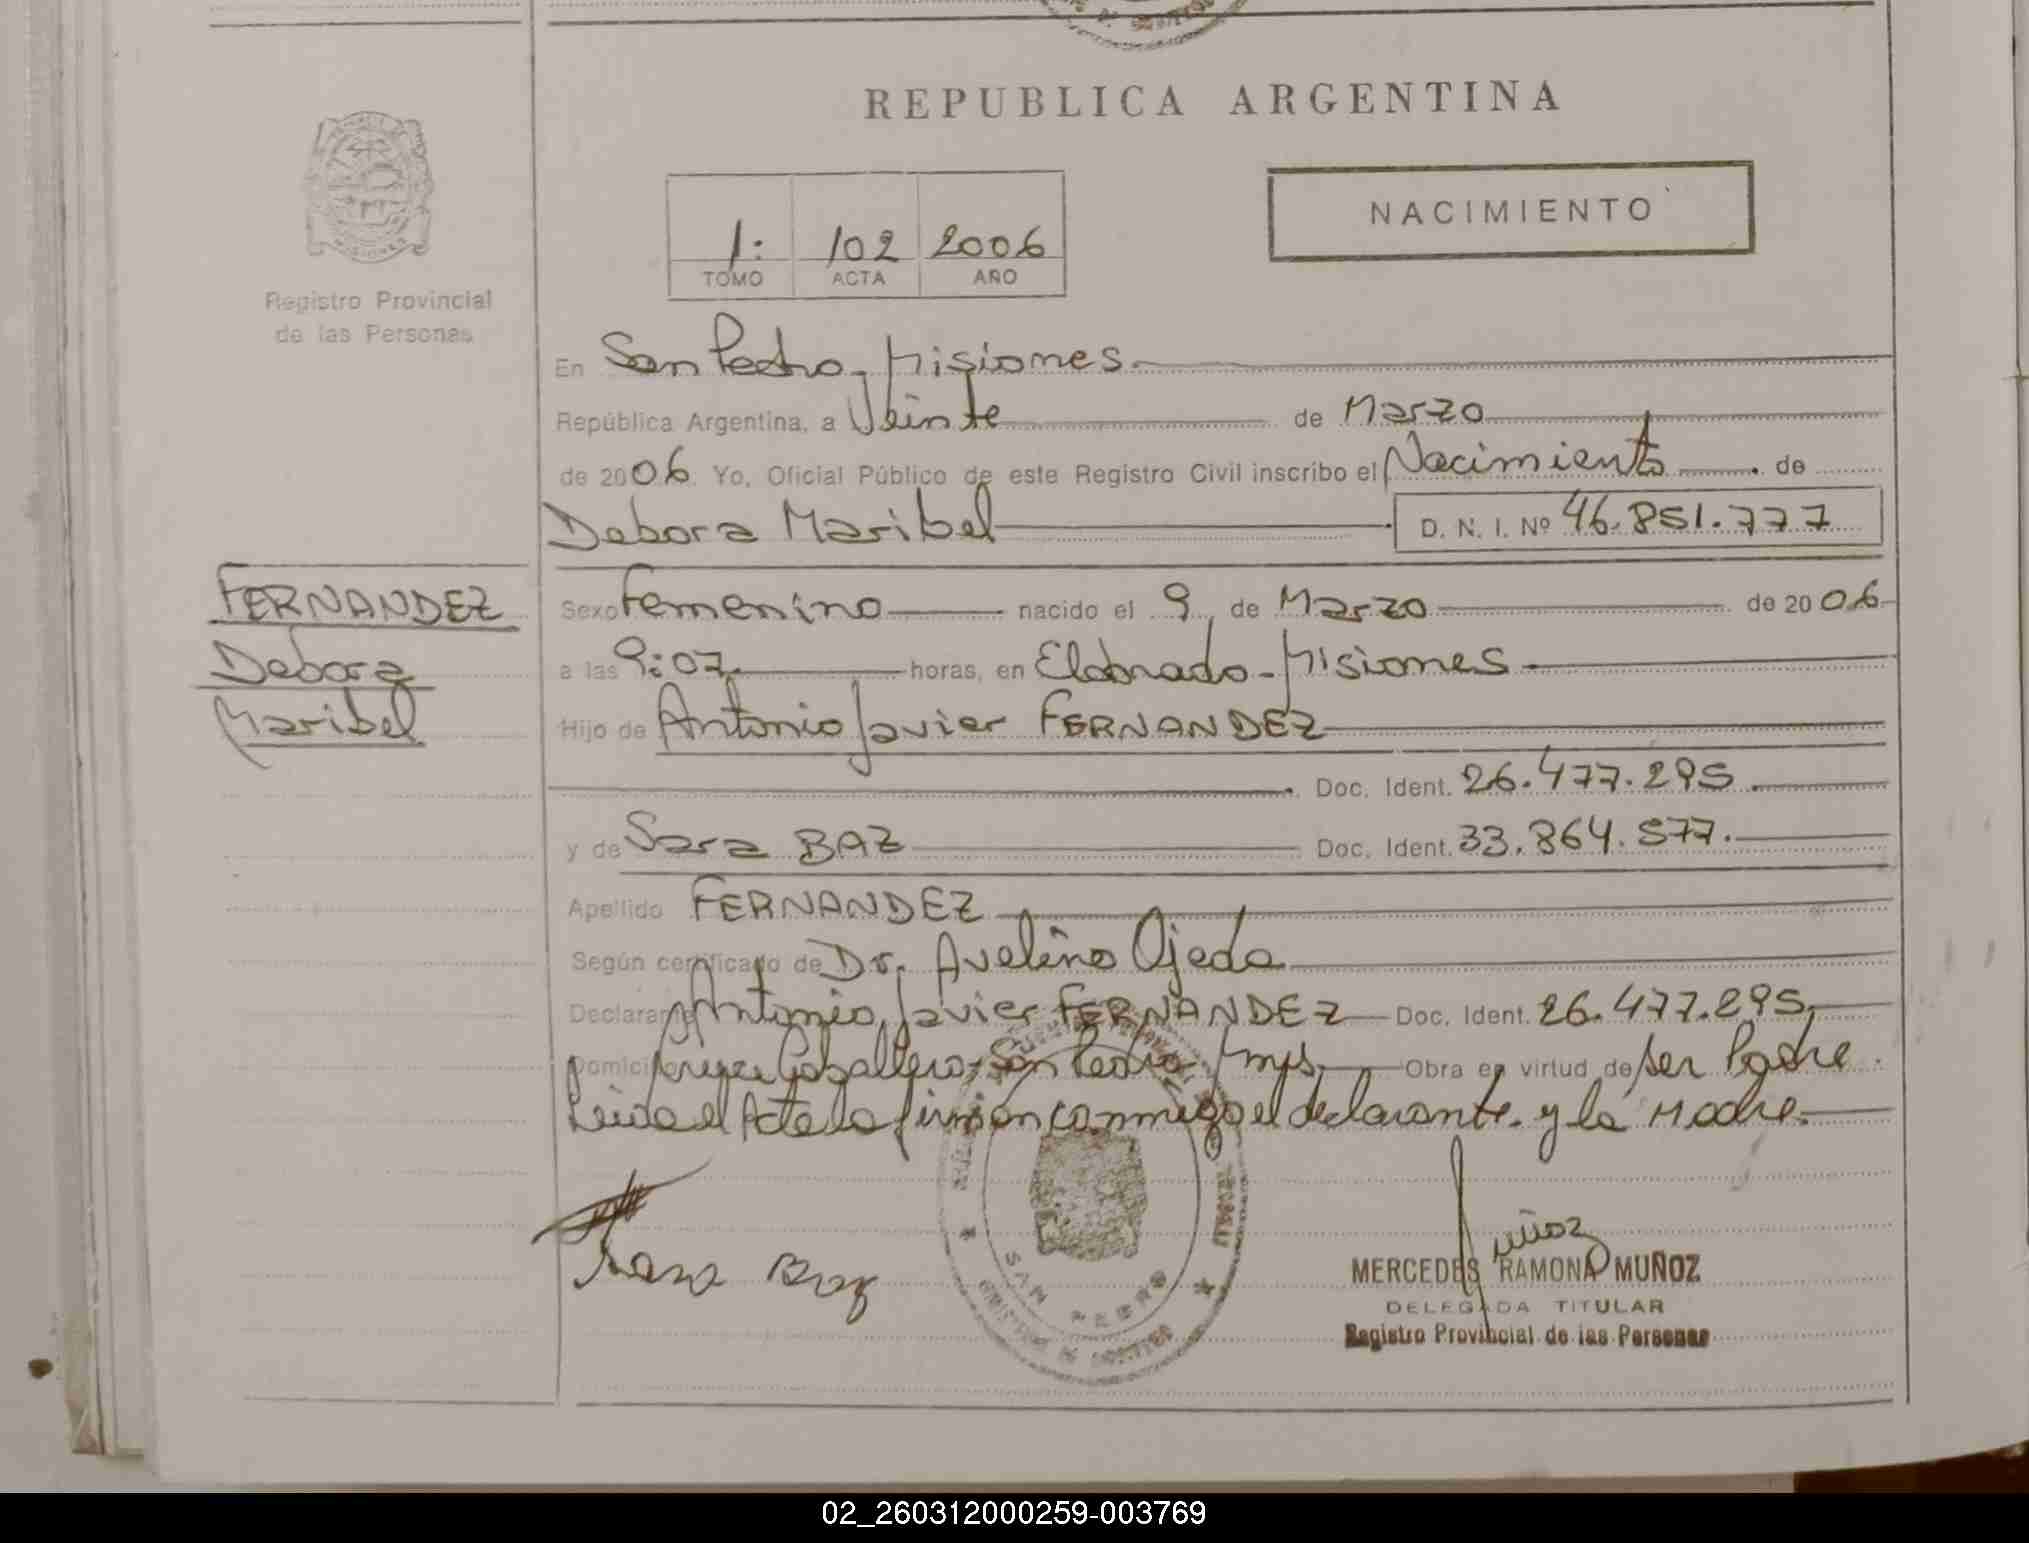 REPUBLICA ARGENTINA
NACIMIENTO
1: 102 2006
TOMO ACTA AÑO
Registro Provincial
de las Personas
En San Pedro - Misiones.
República Argentina, a Veinte de Marzo
de 2006 Yo, Oficial Público de este Registro Civil inscribo el Nacimiento de
Debora Maribel D. N. I. Nº 46.851.777
FERNANDEZ
Debora
Maribel
Sexo Femenino nacido el 9 de Marzo de 2006
a las 9:07 horas, en Eldorado - Misiones
Hijo de Antonio Javier FERNANDEZ
Doc. Ident. 26.477.295
y de Sara BAZ Doc. Ident. 33.864.577.
Apellido FERNANDEZ
Según certificado de Dr. Avelino Ojeda
Declarante Antonio Javier FERNANDEZ Doc. Ident. 26.477.295
Domicilio Caballero - San Pedro - Mns. Obra en virtud de ser Padre
Leida el Acta la firman conmigo el declarante y la Madre.
Sara Baz
SAN PEDRO
Muñoz
MERCEDES RAMONA MUÑOZ
DELEGADA TITULAR
Registro Provincial de las Personas
02_260312000259-003769